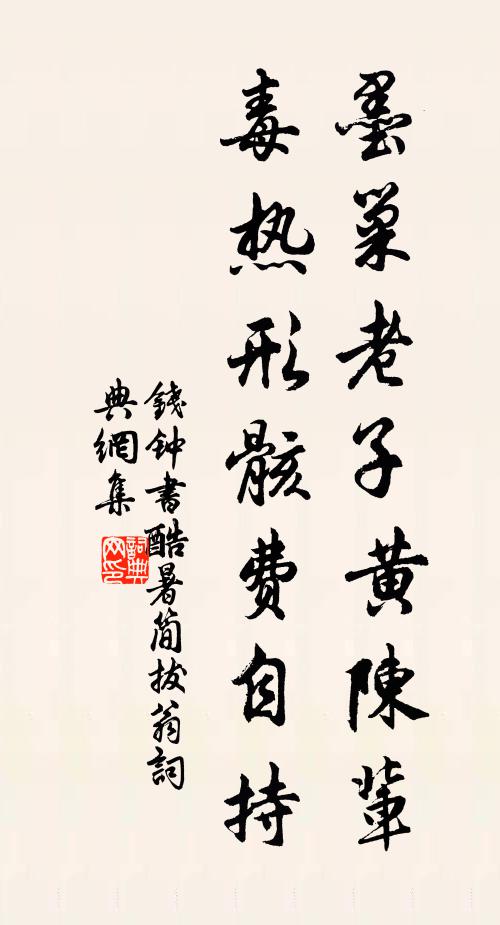 墨巢老子黄陳輩
毒热形骸費自持
錢钟書酷暑简拔翁詞
典網集
詞典
网印